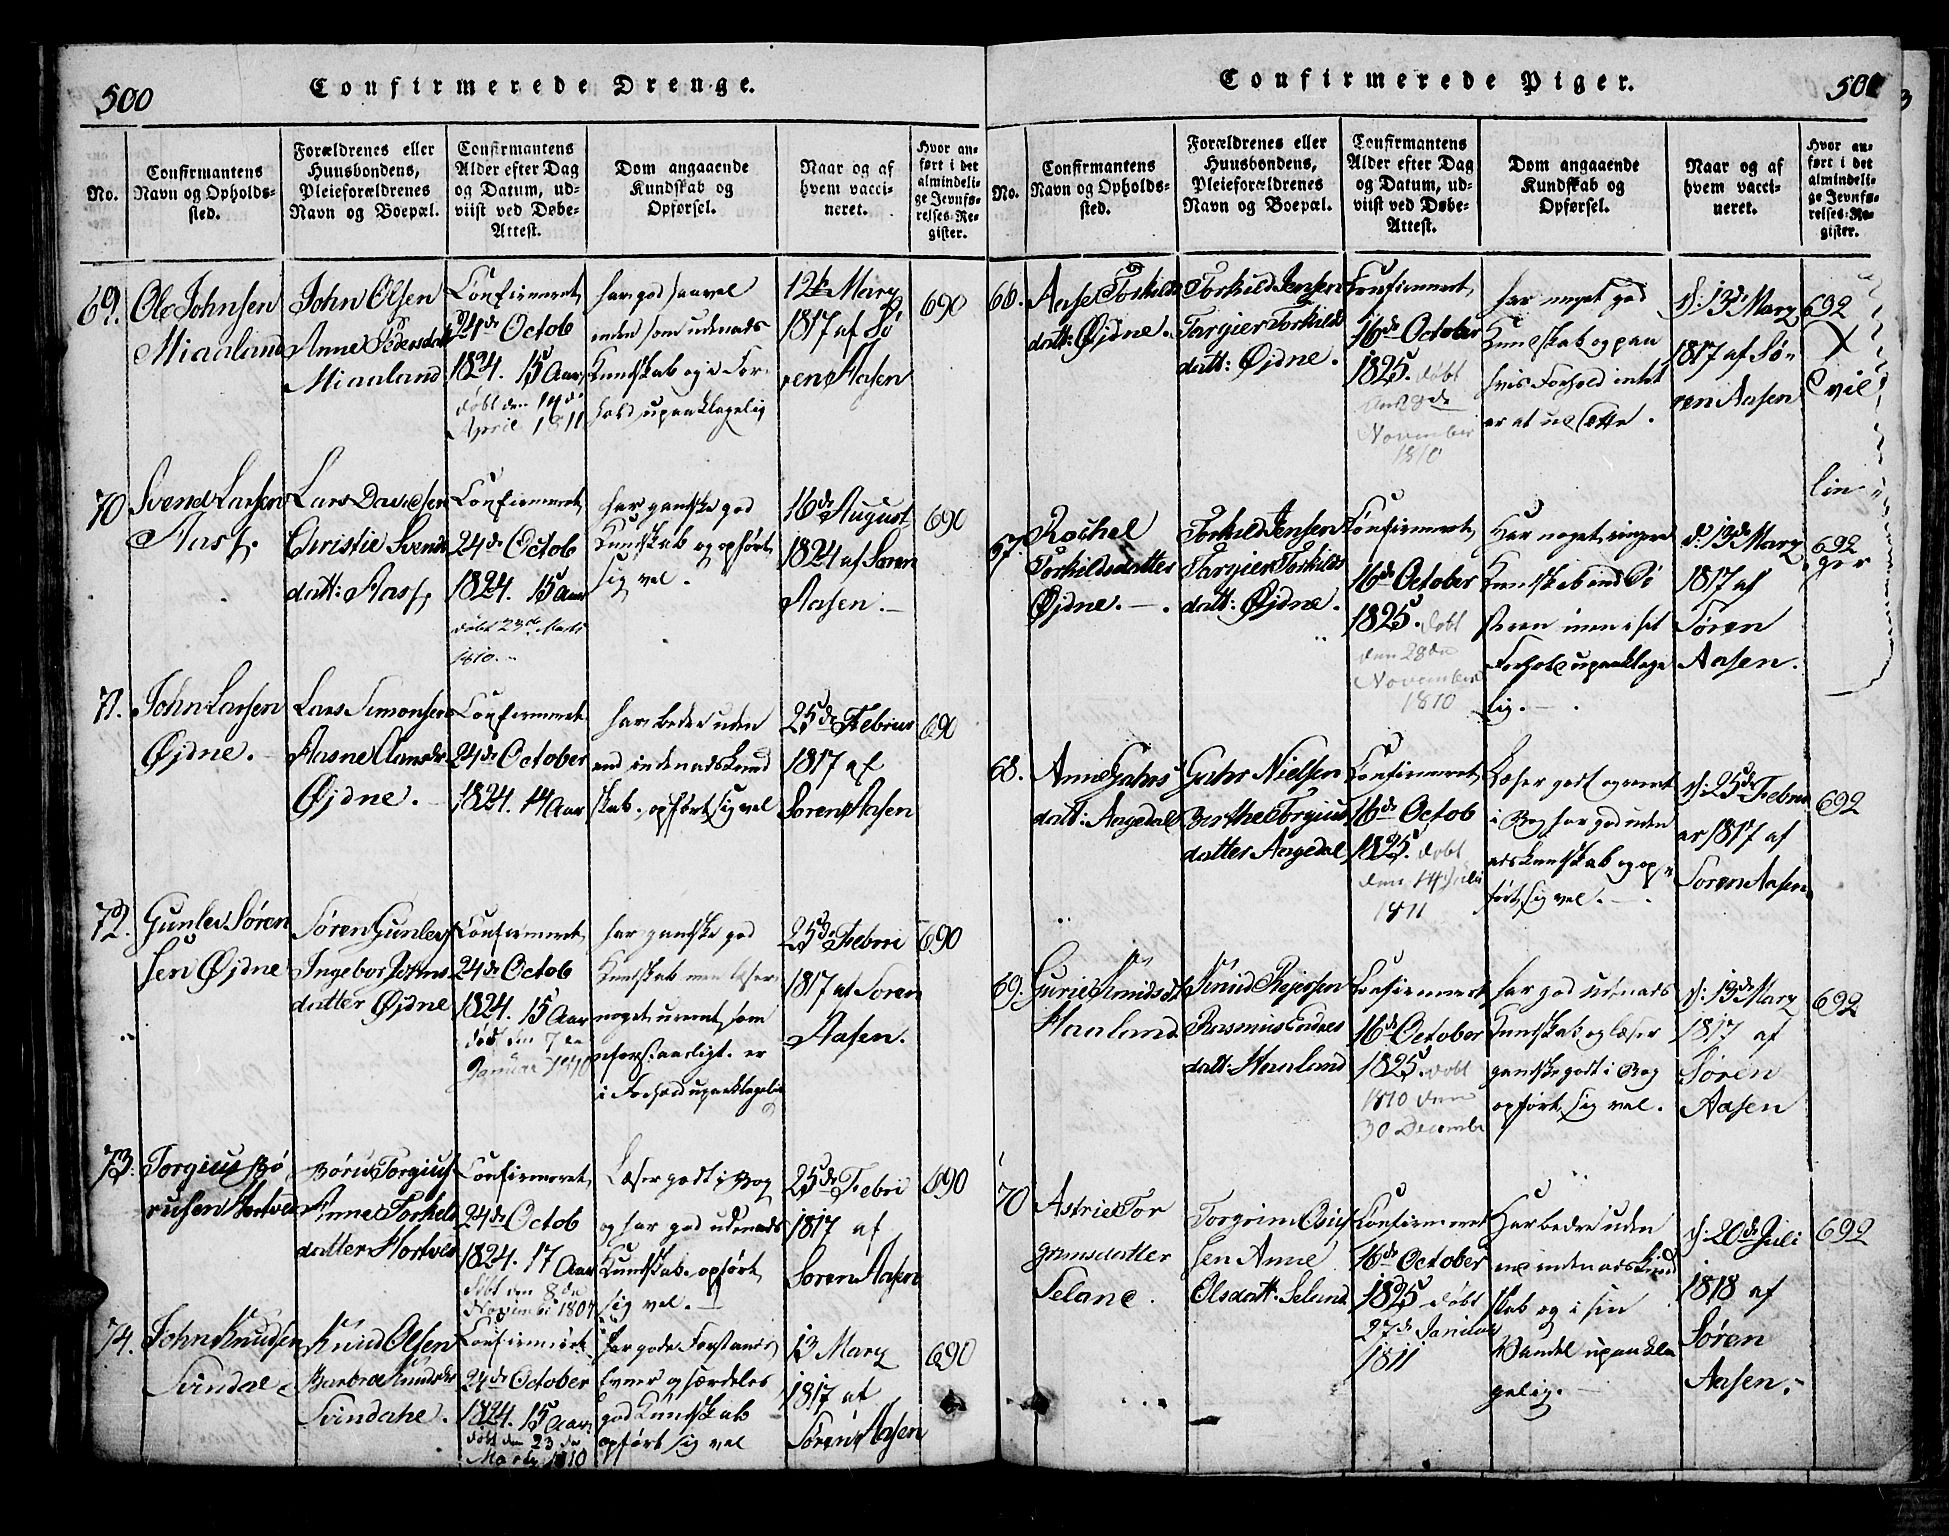 500
Confirmerede Drenge.
No.
Confirmantens
Navn og Opholds-
sted.
Forældrenes eller
Huusbondens,
Pleieforældrenes
Navn og Boepæl.
Confirmantens
Alder efter Dag
og Datum, ud-
viist ved Døbe-
Attest.
Dom angaaende
Kundskab og
Opførsel.
Naar og af
hvem vacci-
neret.
Hvor an-
ført i det
almindeli-
ge Jevnfø-
relses-Re-
gister.
69.
Ole Johnsen
Miaaland
John Olsen
Anne Pedersdatt
Miaaland
Confirmeret
24de Octob
1824. 15 Aar
døbt den 14de
April 1811
har god saavel
inden som udenads
Kundskab og i For-
hold upaaklagelig
12te Marz
1817 af Sø
ren Aasen
690
70
Svend Larsen
Aas
Lars Davidsen
Christie Svends
datt: Aas
Confirmeret
24de Octob
1824. 15 Aar
døbt 23de Marts
1810.
har ganske god
Kundskab og opført
sig vel.
16de August
1824 af Søren
Aasen.
690
71.
John Larsen
Øjdne.
Lars Simonsen
Aasne Clausdr
Øjdne.
Confirmeret
24de October
1824. 14 Aar
har bedre uden
end indenads Kund
skab, opført sig vel
25de Februar
1817 af
Søren Aasen
690
72.
Gunlev Søren
sen Øjdne
Søren Gunlevs
Ingebor Johns
datter Øjdne
Confirmeret
24de Octob
1824. 15 Aar
døbt den 7de
Januar 1810
har ganske god
Kundskab men læser
noget ureent, som
uforstaaeligt. er
i Forhold upaaklagelig
25de Febri
1817 af Søren
Aasen.
690
73.
Torgius Bø
rusen Hortved
Børu Torgius
Anne Torkels
datter Hortved
Confirmeret
24de Octob
1824. 17 Aar
døbt den 8de
November 1807
Læser godt i Bog
og har god udenads
Kundskab. opført
sig vel.
25de Febri
1817 af
Søren Aasen
690
74.
John Knudsen
Svindal
Knud Olsen
Barbroe Knudsdr
Svindahl.
Confirmeret
24de October
1824. 15 Aar
døbt den 23de
Marty 1810
har gode Forstands
Evner og særdeles
god Kundskab
opført sig vel
13 Marz
1817 af
Søren Aasen
690
Confirmerede Piger.
501
No.
Confirmantens
Navn og Opholds-
sted.
Forældrenes eller
Huusbondens,
Pleieforældrenes
Navn og Boepæl.
Confirmantens
Alder efter Dag
og Datum, ud-
viist ved Døbe-
Attest.
Dom angaaende
Kundskab og
Opførsel.
Naar og af
hvem vacci-
neret.
Hvor an-
ført i det
almindeli-
ge Jevnfø-
relses-Re-
gister.
66.
Aase Torkilds
datt: Øjdne.
Torkild Jensen
Targier Torkilds
datt: Øjdne.
Confirmeret
16de October
1825. døbt
den 28de
November
1810
har meget god
Kundskab og paa
hvis Forhold intet
er at udsætte.
d: 13de Marz
1817 af Sø-
ren Aasen
692
X
Tvil
lin-
67.
Rachel
Torkildsdatter
Øjdne.
Torkild Jensen
Targier Torkilds
datt: Øjdne.
Confirmeret
16de October
1825. døbt
den 28de
November
1810
Har noget ringere
Kundskab end Sø
steren men i sit
Forhold upaaklage
lig.
d: 13de Marz
1817 af
Søren
Aasen.
692
ger
68.
Anne Gahrs
datt: Aagedal
Gahr Nielsen
Berthe Torgius
datter Aagedal
Confirmeret
16de Octob
1825. døbt
den 14 Juli
1811
Læser godt og reent
i Bog har god uden
ads Kundskab og op-
ført sig vel.
d: 25de Febru
ar 1817 af
Søren Aasen
692
69.
Gurie Knudsdt
Haaland
Knud Rejersen
Rasmus Endres
datt: Haaland
Confirmeret
16de October
1825. døbt
1810 den
30 Decembr
har god udenads
Kundskab og læser
ganske godt i Bog
opført sig vel.
d: 13de Marz
1817 af
Søren
Aasen
692
70
Astrie Tor
grimsdatter
Seland.
Torgrim Osiuf
sen Anne
Olsdatt. Seland
Confirmeret
16de October
1825 døbt
27de Januar
1811
Har bedre uden
end indenads Kund
skab og i sin
Vandel upaakla
gelig.
d: 20de Juli
1818 af
Søren
Aasen.
692